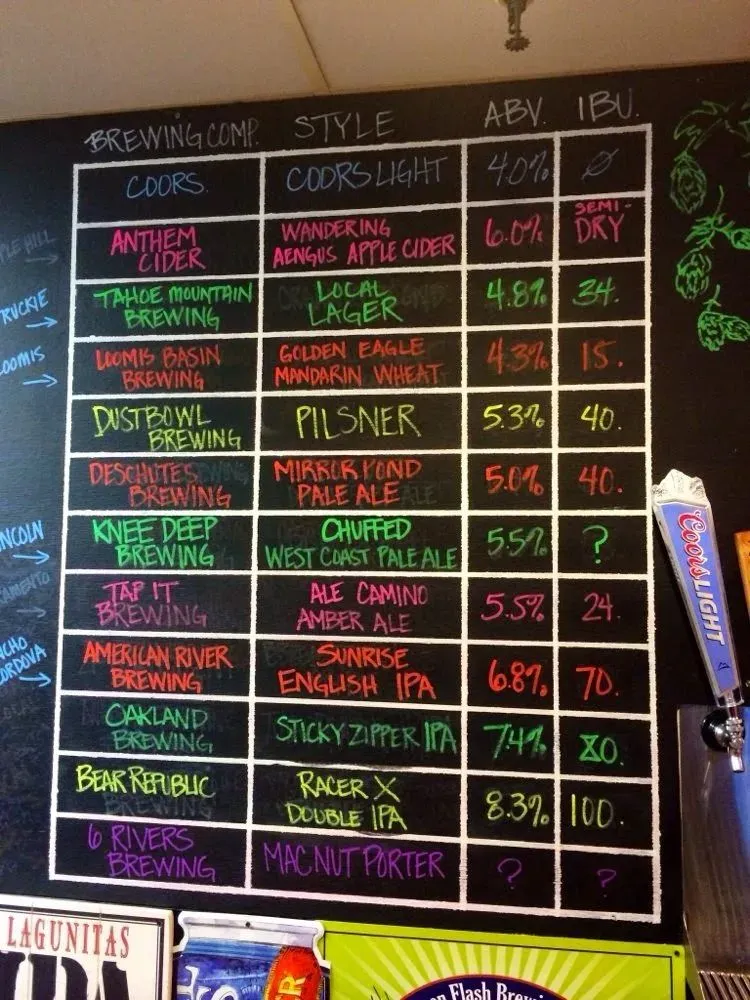 BREWING COMP. STYLE ABV. IBU.
COORS. COORS LIGHT 4.0% Ø
ANTHEM CIDER WANDERING AENGUS APPLE CIDER 6.0% SEMI-DRY
TAHOE MOUNTAIN BREWING LOCAL LAGER 4.8% 34.
LOOMIS BASIN BREWING GOLDEN EAGLE MANDARIN WHEAT 4.3% 15.
DUSTBOWL BREWING PILSNER 5.3% 40.
DESCHUTES BREWING MIRROR POND PALE ALE 5.0% 40.
KNEE DEEP BREWING CHUFFED WEST COAST PALE ALE 5.5% ?
TAP IT BREWING ALE CAMINO AMBER ALE 5.5% 24.
AMERICAN RIVER BREWING SUNRISE ENGLISH IPA 6.8% 70.
OAKLAND BREWING STICKY ZIPPER IPA 7.4% 80.
BEAR REPUBLIC RACER X DOUBLE IPA 8.3% 100.
6 RIVERS BREWING MAC NUT PORTER ? ?
PLE HILL
RUCKIE
OOMIS
NCOLN
AMENTO
CHO
ORDOVA
Coors LIGHT
LAGUNITAS
IPA
Flash Brewi